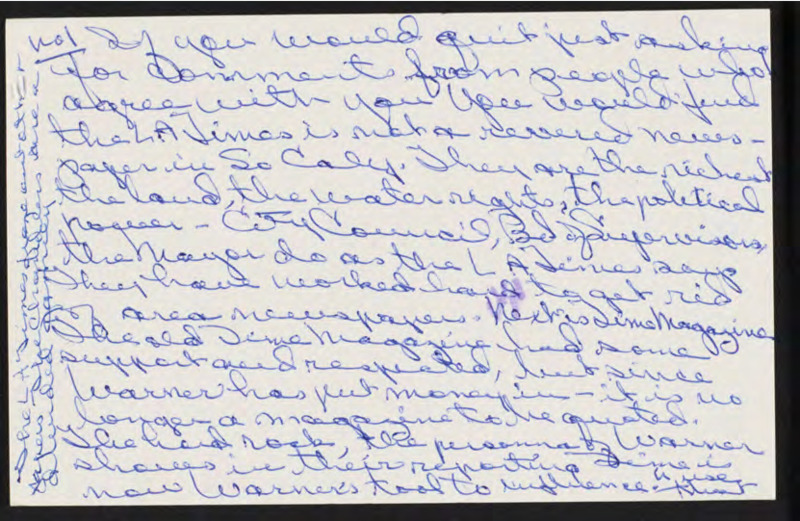 not If you would quit just asking
for comments from people who
agree with you you would find
the LA Times is not a revered news-
paper in So Calif. They are the richest
the land, the water rights, the political
power - City Council, Bd of Supervisors,
the Mayor do as the L A Times says
They have worked hard to get rid
of area newspapers. Next is Time Magazine
The old Time Magazine had some
support and respected, but since
Warner has put money in - it is no
longer a magazine to be quoted.
The hard rock, the persona of Warner
shows in their reporting Time is
now Warner's tool to influence
The L A Times
news The Chandlers are a